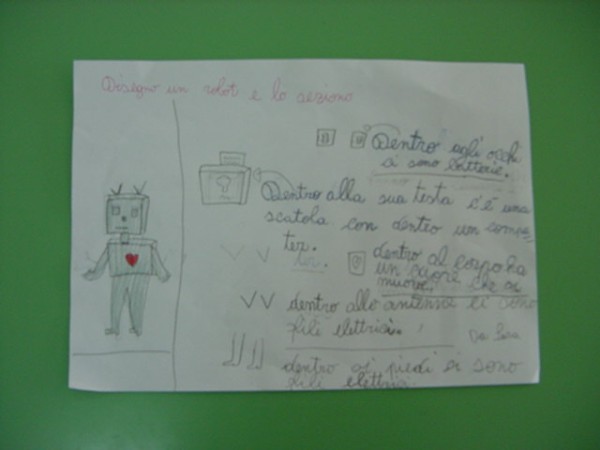 Disegno un robot e lo seziono
Dentro agli occhi
ci sono batterie.
Dentro alla sua testa c'è una
scatola con dentro un compu
ter.
ter.
dentro al corpo ha
un cuore che si
muove.
dentro alle antenne ci sono
fili elettrici.
dentro ai piedi ci sono
fili elettrici